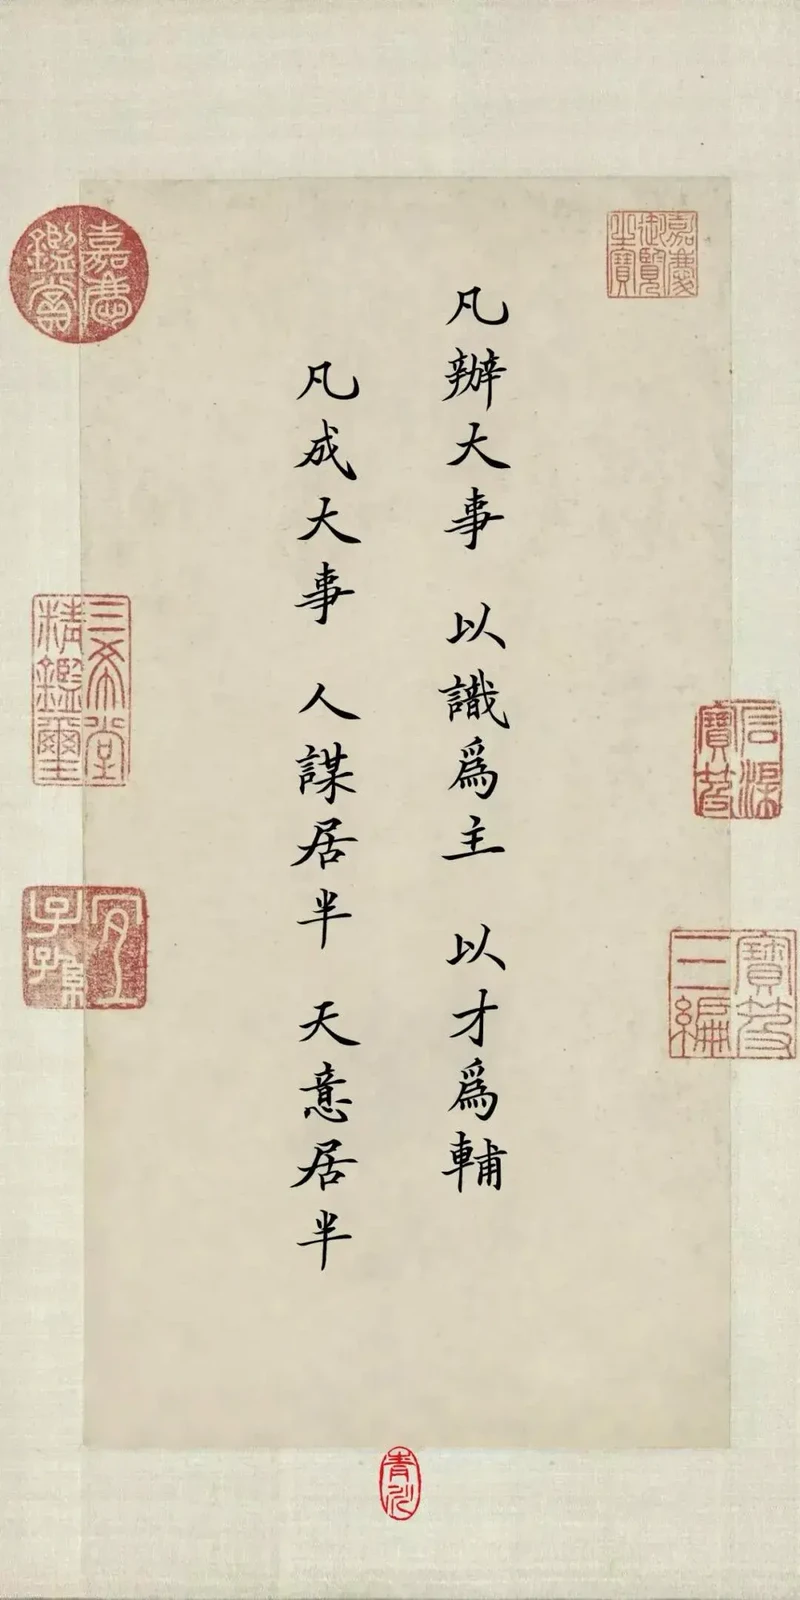 凡辦大事 以識爲主 以才爲輔
凡成大事 人謀居半 天意居半
嘉慶御覽之寶
嘉慶鑑賞
三希堂精鑑璽
宜子孫
寶笈三編